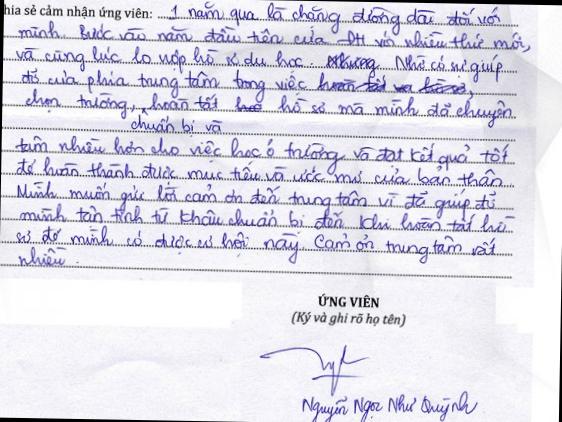 hia sẻ cảm nhận ứng viên: 1 năm qua là chặng đường dài đối với
mình. Bước vào năm đầu tiên của ĐH với nhiều thứ mới,
và cùng lúc lo nộp hồ sơ du học. Nhưng Nhờ có sự giúp
đỡ của phía trung tâm trong việc hoàn tất và hồ sơ,
chọn trường, chuẩn bị và hoàn tất hồ sơ mà mình đã chuyên
tâm nhiều hơn cho việc học ở trường và đạt kết quả tốt
để hoàn thành được mục tiêu và ước mơ của bản thân
Mình muốn gửi lời cảm ơn đến trung tâm vì đã giúp đỡ
mình tận tình từ khâu chuẩn bị đến khi hoàn tất hồ
sơ để mình có được cơ hội này. Cảm ơn trung tâm rất
nhiều.
ỨNG VIÊN
(Ký và ghi rõ họ tên)
Nguyễn Ngọc Như Quỳnh